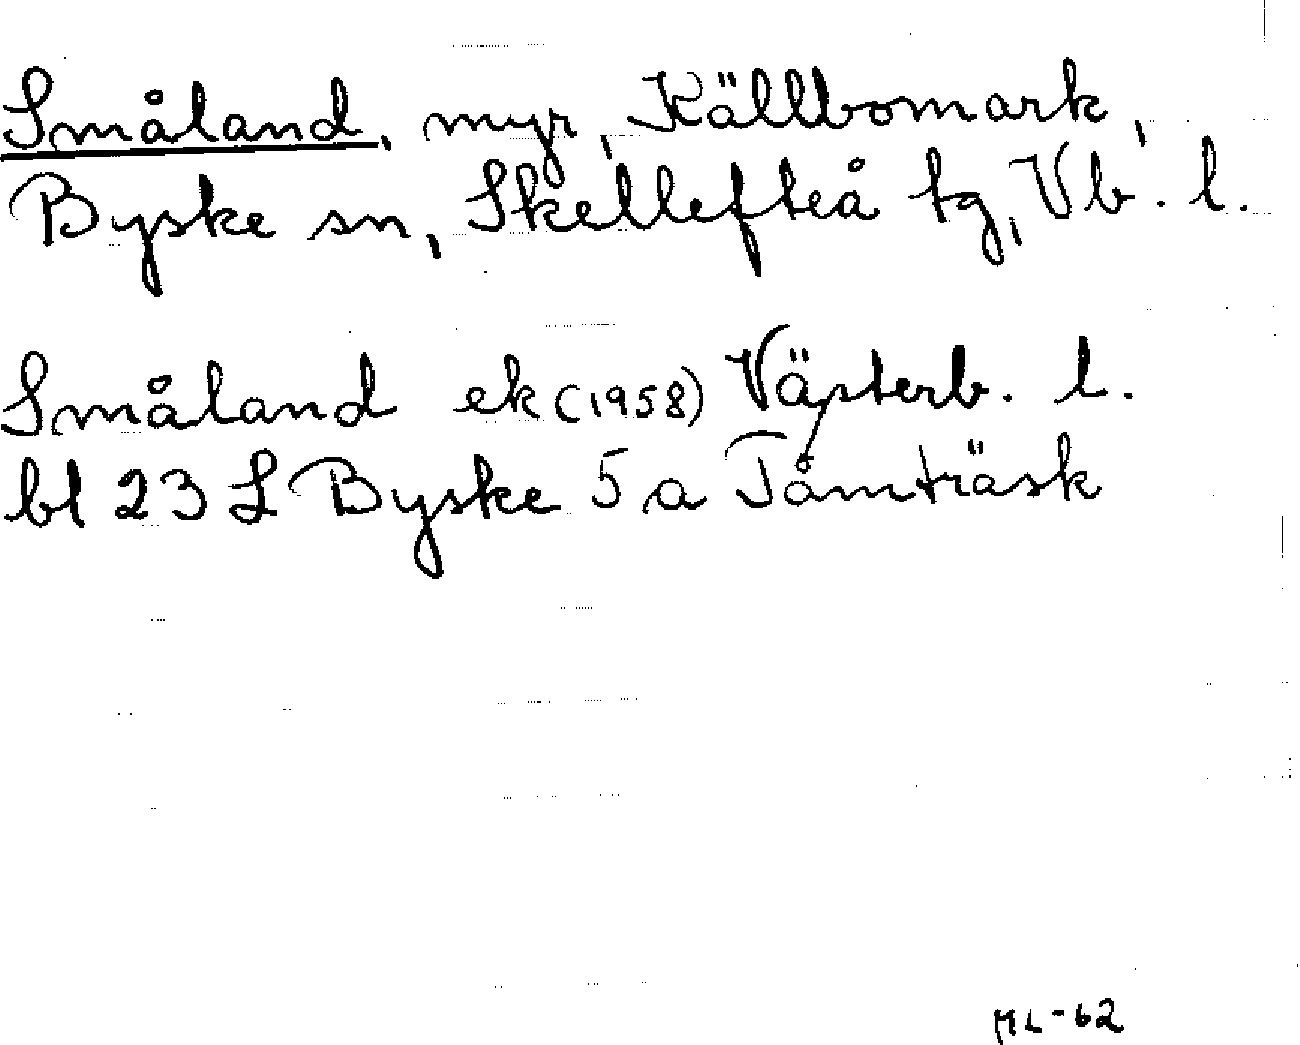 Småland, myr, Källbomark,
Byske sn, Skellefteå tg, Vb. l.
Småland ek (1958) Västerb. l.
bl 23 L Byske 5 a Tåmträsk
ML-62